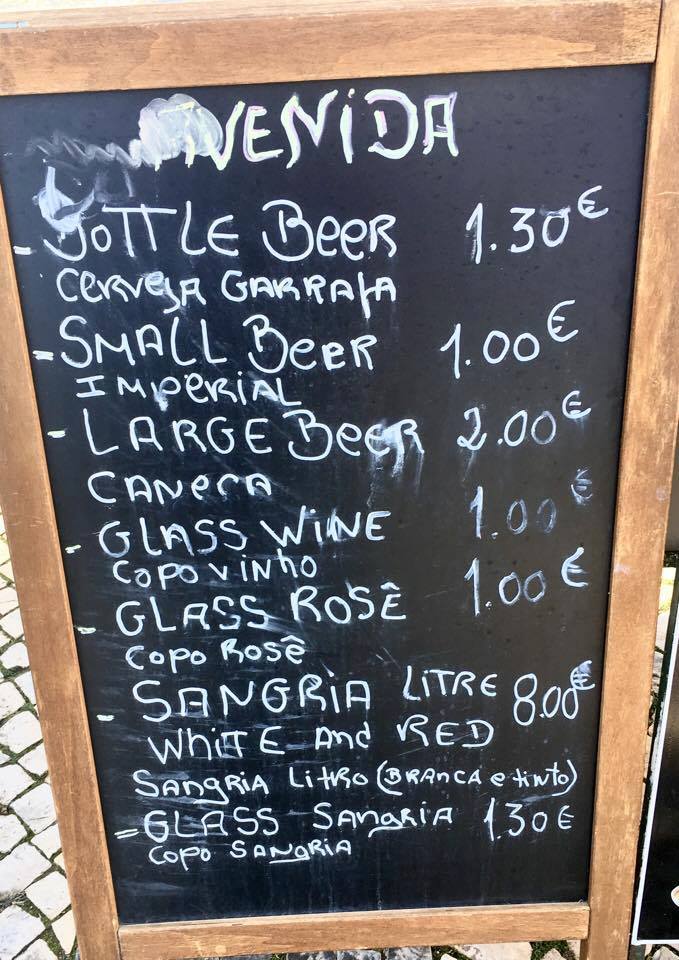 AVENIDA
- BOTTLE BEER 1.30€
CERVEJA GARRAFA
= SMALL BEER 1.00€
IMPERIAL
- LARGE BEER 2.00€
CANECA
- GLASS WINE 1.00€
COPO VINHO
- GLASS ROSÊ 1.00€
COPO ROSÊ
- SANGRIA LITRE 8.00€
WHITE AND RED
SANGRIA LITRO (BRANCA e tinto)
= GLASS SANGRIA 1.30€
COPO SANGRIA